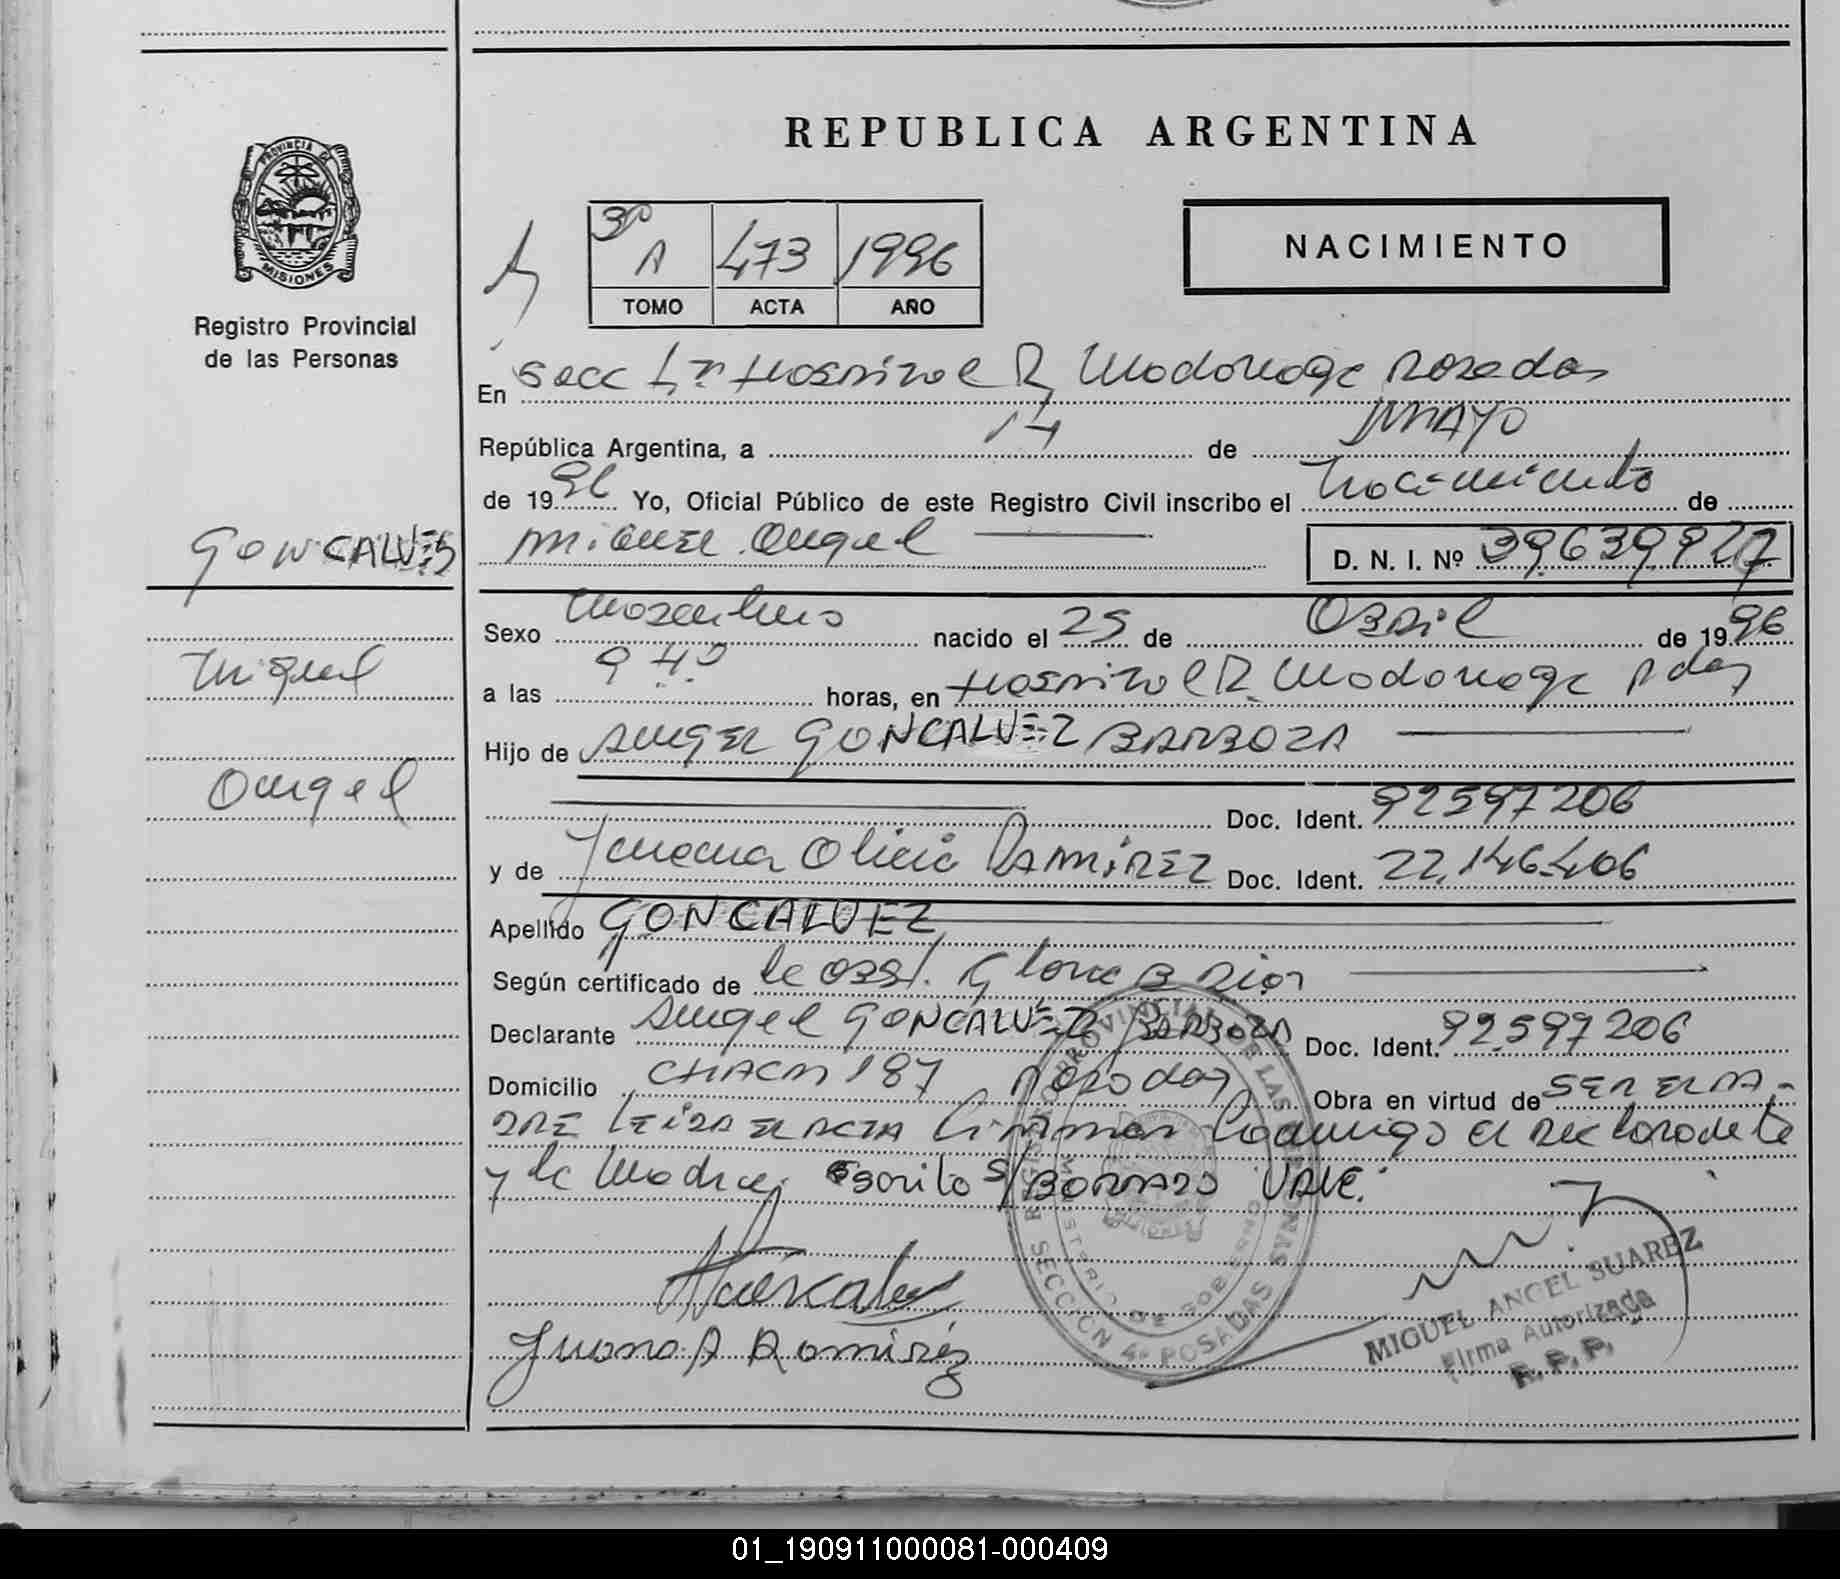 REPUBLICA ARGENTINA
PROVINCIA DE
MISIONES
Registro Provincial
de las Personas
3º A 473 1996
TOMO ACTA AÑO
NACIMIENTO
En Secc 4ª Hospital R Madariaga Posadas
República Argentina, a 14 de MAYO
de 1996 Yo, Oficial Público de este Registro Civil inscribo el Nacimiento de
GONCALVES
Miguel Angel D. N. I. Nº 39639927
Sexo Masculino nacido el 25 de Abril de 1996
Miguel
a las 9 40 horas, en Hospital R. Madariaga Pdas
Hijo de ANGEL GONCALVEZ BARBOZA
Angel
Doc. Ident. 92597206
y de Juana Olicia RAMIREZ Doc. Ident. 22.146.406
Apellido GONCALVEZ
Según certificado de la Obst. Gloria B Rios
Declarante Angel GONCALVEZ BARBOZA Doc. Ident. 92.597206
Domicilio CHACO 187 Posadas Obra en virtud de SER EL PA-
DRE LEIDA EL ACTA Firman Conmigo el declarante
y la Madre. Escrito S/ BORRADO VALE.
REGISTRO PROVINCIAL DE LAS PERSONAS
MINISTERIO DE GOBIERNO
SECCION 4ª POSADAS
Juana A Ramirez
MIGUEL ANGEL SUAREZ
Firma Autorizada
R. P. P.
01_190911000081-000409